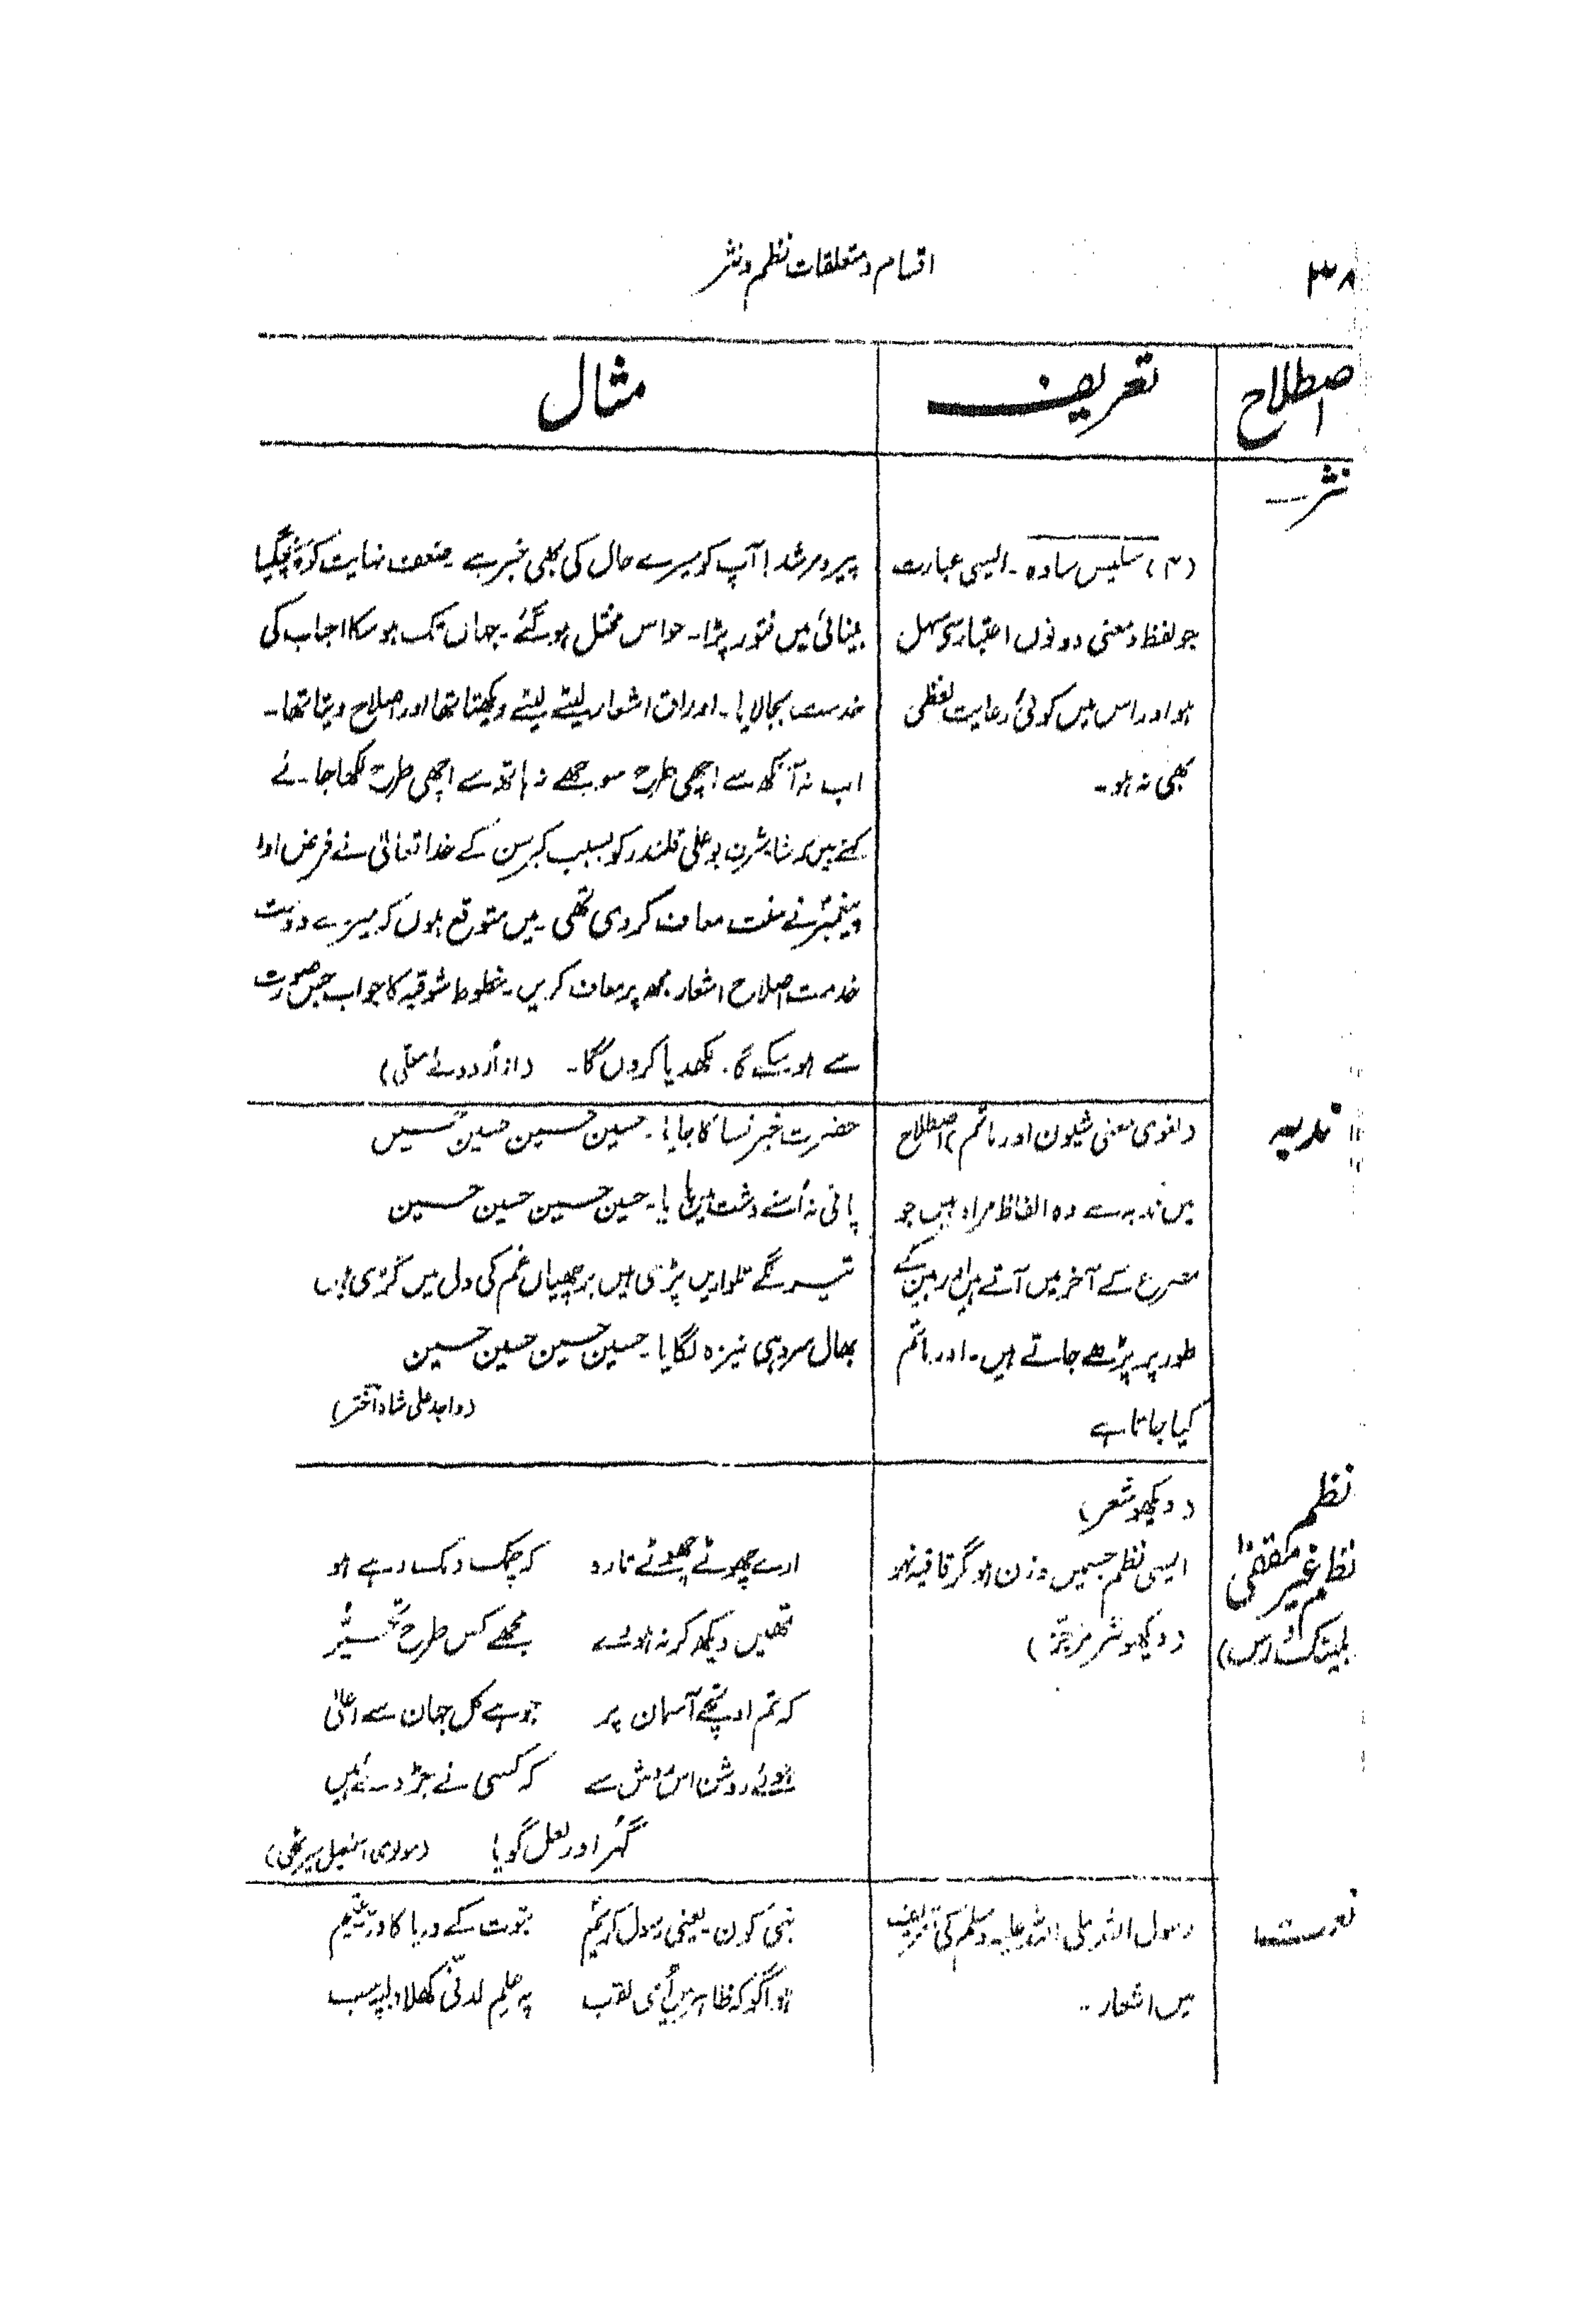 ۳۸
اقسام و متعلقات نظم و نثر
اصطلاح
تعریف
مثال
نثر
(۴) سلیس سادہ ۔ ایسی عبارت
جو لفظ و معنی دونوں اعتبار سے سہل
ہو اور اس میں کوئی رعایت لفظی
بھی نہ ہو ۔
پیر و مرشد! آپ کو میرے حال کی بھی خبر ہے ۔ ضعف نہایت کو پہنچ گیا
بینائی میں فتور پڑا ۔ حواس مختل ہو گئے ۔ جہاں تک ہو سکا احباب کی
خدمت بجا لایا ۔ اوراق اشعار لیٹے لیٹے دیکھتا تھا اور اصلاح دیتا تھا ۔
اب نہ آنکھ سے اچھی طرح سوجھے نہ ہاتھ سے اچھی طرح لکھا جائے
کہتے ہیں کہ شاہ شرف بو علی قلندر کو بسبب کبر سن کے خدا تعالیٰ نے فرض اور
پیغمبر نے سنت معاف کر دی تھی ۔ میں متوقع ہوں کہ میرے دوست
خدمت اصلاح اشعار مجھ پر معاف کریں ۔ خطوط شوقیہ کا جواب جس صورت
سے ہو سکے گا ۔ لکھدیا کروں گا ۔ (از اُردوئے معلّی)
ندبہ
(لغوی معنی شیون اور ماتم) اصطلاح
میں ندبہ سے وہ الفاظ مراد ہیں جو
مصرع کے آخر میں آتے ہیں اور بین کے
طور پر پڑھے جاتے ہیں ۔ اور ماتم
کیا جاتا ہے
حضرت خیر نسا کا جایا ۔ حسین حسین حسین حسین
پانی نہ اُسنے دشت میں پایا ۔ حسین حسین حسین حسین
تیر لگے تلواریں پڑی ہیں برچھیاں غم کی دل میں گڑی ہیں
بھال سروہی نیزہ لگایا ۔ حسین حسین حسین حسین
(واجد علی شاہ اختر)
نظم
(دیکھو شعر)
نظم غیر مقفّیٰ
(بلینک ورس)
ایسی نظم جسمیں وزن ہو مگر قافیہ نہو
(دیکھو نثر مرجّز)
ارے چھوٹے چھوٹے تارو کہ چمک دمک رہے ہو
تمھیں دیکھ کر نہ ہووے مجھے کس طرح تحیّر
کہ تم اونچے آسمان پر جو ہے کل جہان سے اعلیٰ
ہوئے روشن اس روش سے کہ کسی نے جڑ دیئے ہیں
گہر اور لعل گویا (مولوی اسمٰعیل میرٹھی)
نعت
رسول اللہ صلی اللہ علیہ وسلم کی تعریف
میں اشعار ۔
نبی کون ۔ یعنی رسول کریم نبوت کے دریا کا درّ یتیم
ہوا گو کہ ظاہر میں اُمّی لقب پہ علم لدنّی کھلا دل پہ سب